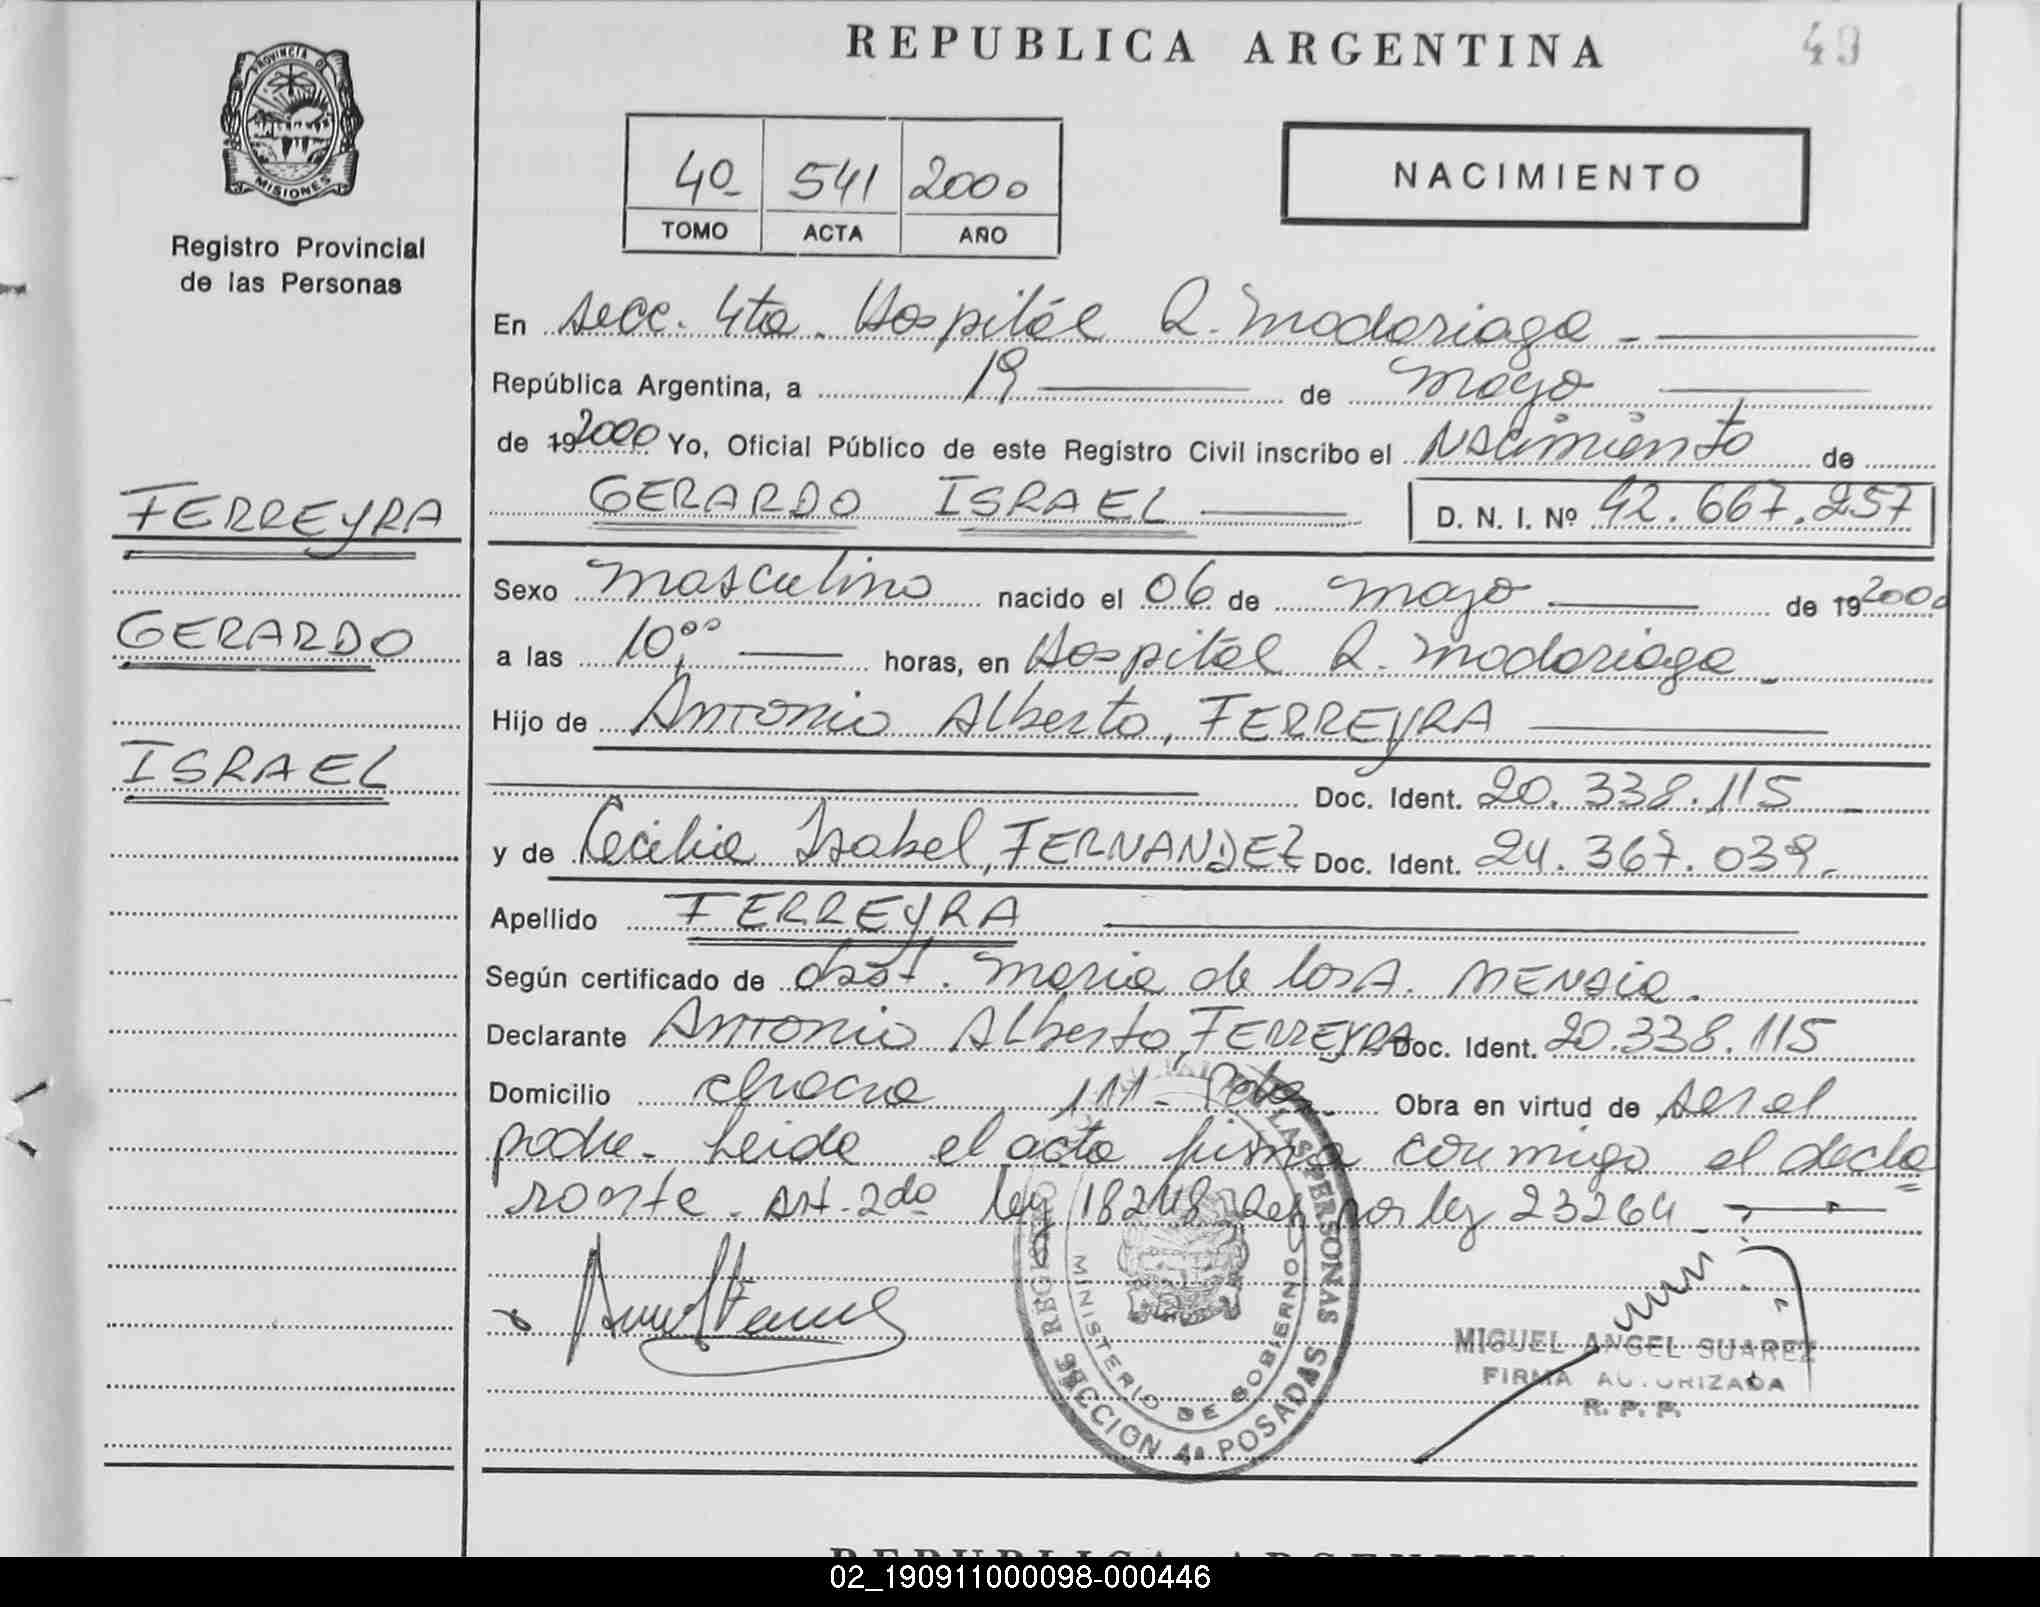 REPUBLICA ARGENTINA
49
PROVINCIA DE
MISIONES
Registro Provincial
de las Personas
4º 541 2000
TOMO ACTA AÑO
NACIMIENTO
En secc. 4ta. Hospital R. Madariaga -
República Argentina, a 19 de Mayo
de 192000 Yo, Oficial Público de este Registro Civil inscribo el Nacimiento de
GERARDO ISRAEL D. N. I. Nº 42.667.257
FERREYRA
GERARDO
ISRAEL
Sexo masculino nacido el 06 de mayo de 192000
a las 10,ºº horas, en Hospital R. Madariaga -
Hijo de Antonio Alberto, FERREYRA
Doc. Ident. 20.338.115 -
y de Cecilia Isabel, FERNANDEZ Doc. Ident. 24.367.039.
Apellido FERREYRA
Según certificado de obst. Maria de los A. MENDIA.
Declarante Antonio Alberto, FERREYRA Doc. Ident. 20.338.115
Domicilio chacra 111 - Pdas. Obra en virtud de ser el
padre. Leida el acta firma conmigo el decla
rante. Art. 2do ley 18248 por ley 23264
REGISTRO LAS PERSONAS
MINISTERIO DE GOBIERNO
SECCION 4ª POSADAS
MIGUEL ANGEL SUAREZ
FIRMA AUTORIZADA
R. P. P.
REPUBLICA ARGENTINA
02_190911000098-000446